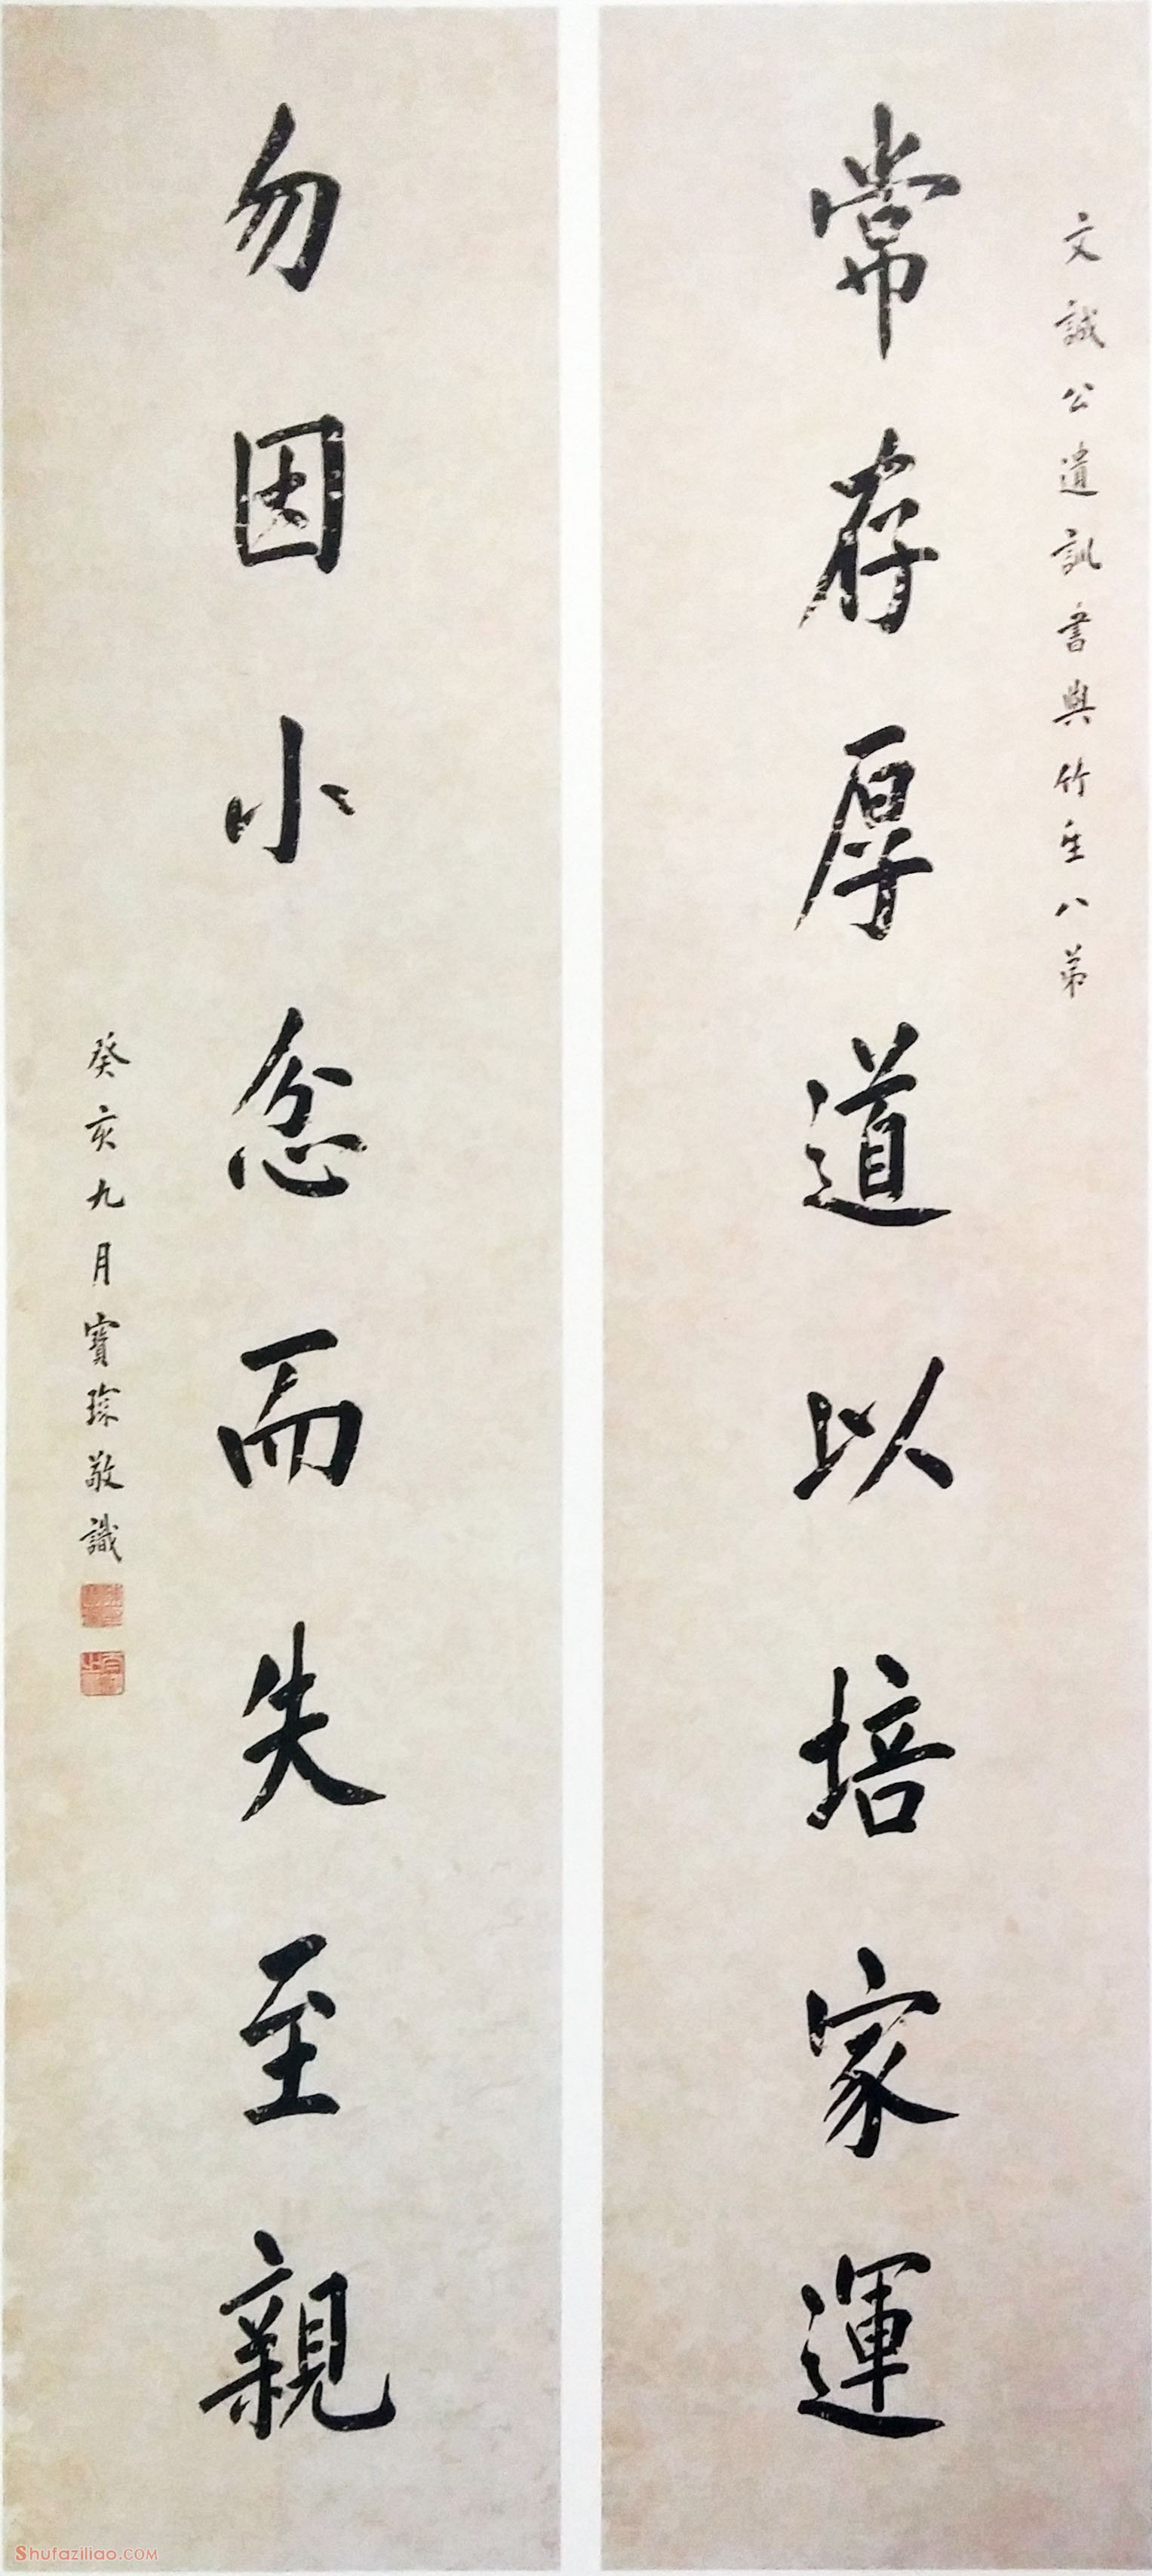 文誠公遺訓書與竹生八弟
常存厚道以培家運
勿因小忿而失至親
癸亥九月寶琛敬識
Shufaziliao.COM